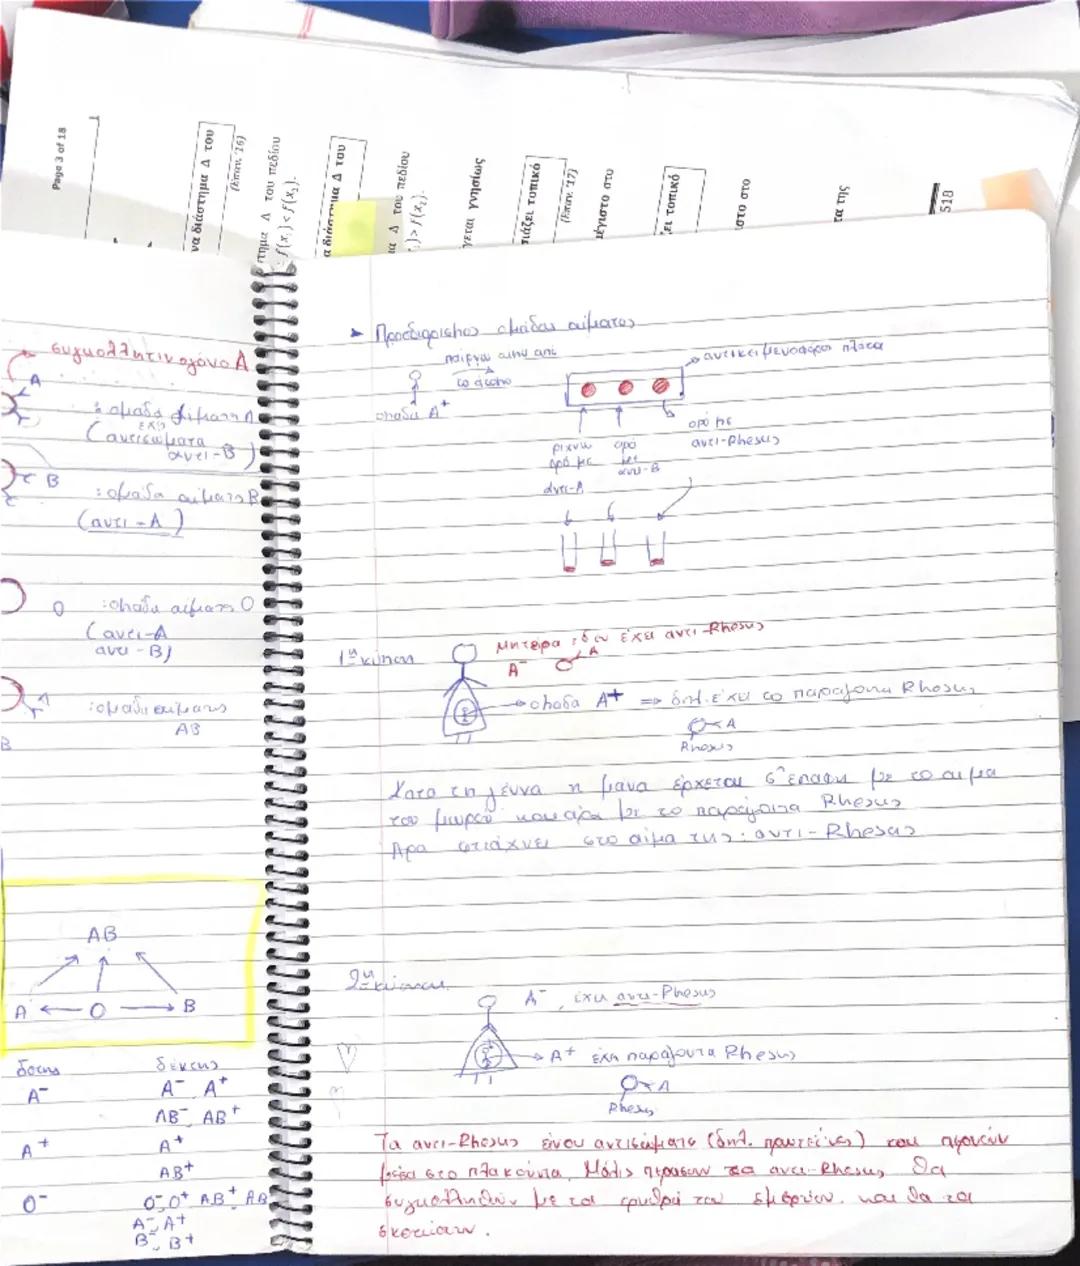 Page 3 of 18
να διάστημα Δ του
(Επαν. '16)
τημα Δ του πεδίου
f(x₁) < f(x₂).
α διάστημα Δ του
α Δ του πεδίου
) > f(x₂).
γεται γνησίως
σιάζει τοπικό
(Επαν. '17)
μέγιστο στο
ζει τοπικό
στο στο
τα της
518
συγκολλητινογόνο Α
Α
: ομάδα αίματος Α
(έχω αντισώματα
αντι-Β)
Β
: ομάδα αίματος Β
(αντι-Α)
Ο : ομάδα αίματος Ο
(αντι-Α
αντι-Β)
: ομάδα αίματος
ΑΒ
Β
ΑΒ
Α ← Ο → Β
δότης δέκτης
Α⁻ Α⁻, Α⁺
ΑΒ⁻, ΑΒ⁺
Α⁺ Α⁺
ΑΒ⁺
Ο⁻ Ο⁻, Ο⁺ ΑΒ⁺, ΑΒ
Α⁻, Α⁺
Β⁻, Β⁺
➤ Προσδιορισμος ομάδας αίματος
παίρνω αίμα από
το άτομο
ομάδα Α⁺
αντικειμενοφόρος πλάκα
ρίχνω
ορό με
αντι-Α
ορό
με
αντι-Β
ορό με
αντι-Rhesus
1η κύηση
Μητέρα : δεν έχει αντι-Rhesus
Α⁻ Α
ομάδα Α⁺ ⇒ δηλ. έχει το παράγοντα Rhesus
Α
Rhesus
Κατά τη γέννα η μάνα έρχεται σ' επαφή με το αίμα
του μωρού και άρα με το παράγοντα Rhesus
Άρα φτιάχνει στο αίμα της : αντι-Rhesus
2η κύηση
Α⁻, έχει αντι-Rhesus
Α⁺ έχει παράγοντα Rhesus
Α
Rhesus
Τα αντι-Rhesus είναι αντισώματα (δηλ. πρωτεΐνες) και περνούν
μέσα στο πλακούντα. Μόλις περάσουν τα αντι-Rhesus, θα
συγκολληθούν με τα ερυθρά του εμβρύου και θα τα
σκοτώσουν.